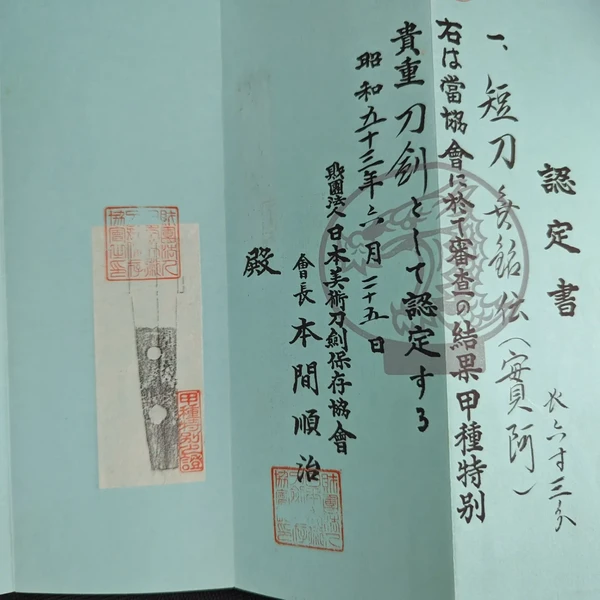 認定書
一、短刀 無銘 伝（實阿）
長六寸三分
右は當協會に於て審査の結果甲種特別
貴重刀劍として認定する
昭和五十三年六月二十五日
財團法人日本美術刀劍保存協會
會長 本間順治
殿
甲種特別公證